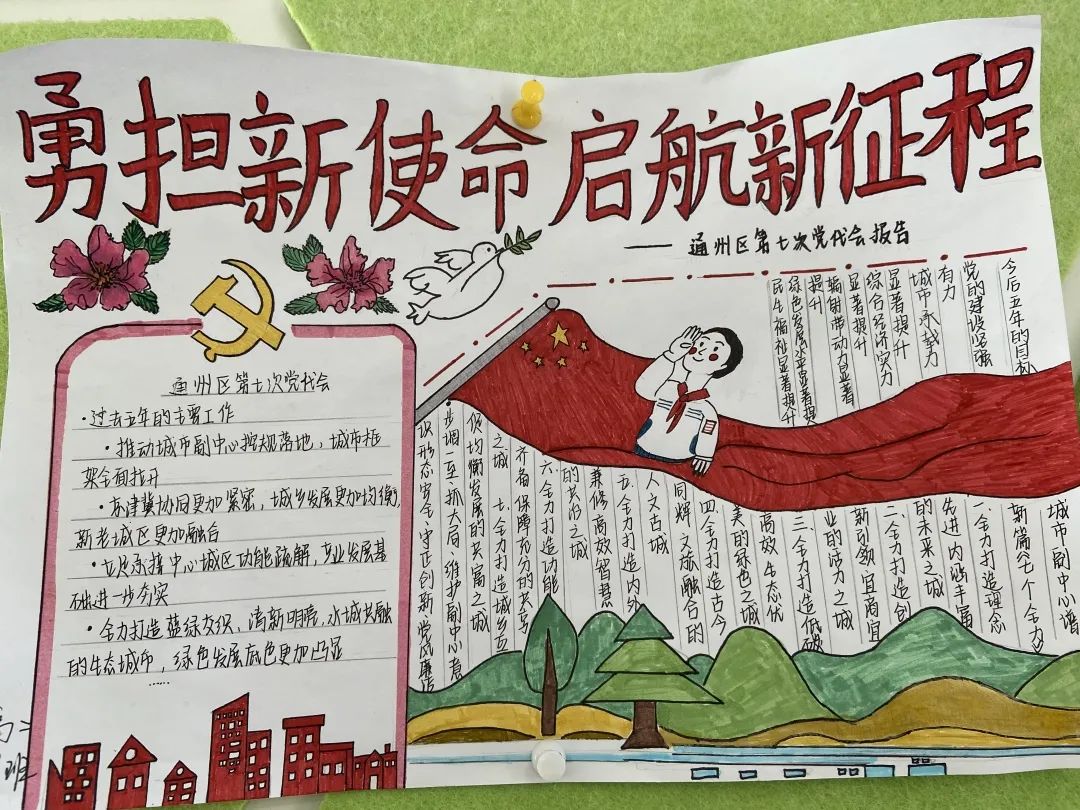 勇担新使命 启航新征程
—— 通州区第七次党代会报告
通州区第七次党代会
·过去五年的主要工作
·推动城市副中心控规落地，城市框
架全面拉开
·京津冀协同更加紧密，城乡发展更加均衡，
新老城区更加融合
承接中心城区功能疏解，产业发展基
础进一步夯实
·全力打造蓝绿交织，清新明亮，水城共融
的生态城市，绿色发展底色更加凸显
……
今后五年的目标
党的建设坚强
有力
城市承载力
显著提升
综合经济实力
显著提升
辐射带动力显著
提升
绿色发展水平显著提
民生福祉显著提升
城市副中心谱
新篇 七个全力
一全力打造理念
先进内涵丰富
的未来之城
二全力打造创
新引领宜商宜
业的活力之城
三全力打造低碳
高效生态优
美的绿色之城
四全力打造古今
同辉文旅融合的
人文古城
五全力打造内外
兼修高效智慧
的共治之城
六全力打造功能
齐备保障充分的共享
之城
七全力打造城乡互
促均衡发展的共富之城
步调一至 抓大局 维护副中心意
识形态安全 守正创新 党风廉洁
班